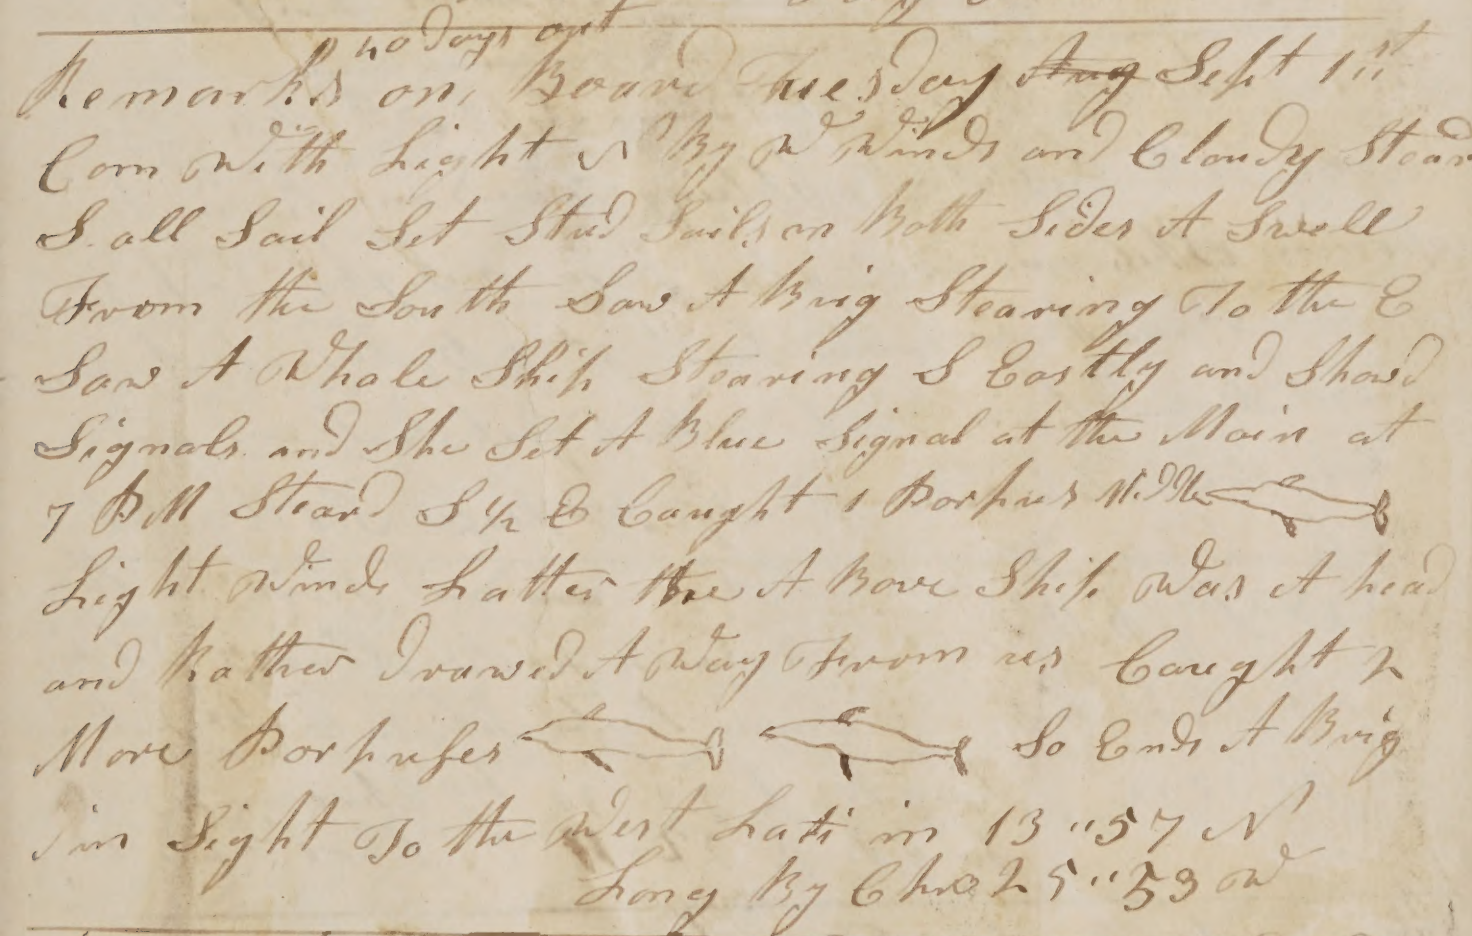 40 days out
Remarks on Board Tuesday Aug Sept 1st
Com With Light N By W Winds and Cloudy Stear
S. all Sail Set Stud Sails on Both Sides A Swell
From the South Saw A Brig Stearing To the E
Saw A Whale Ship Stearing S Eastly and Showd
Signals and She Set A Blue Signal at the Main at
7 PM Steard S 1/2 E Caught 1 Porpus Middle
Light Winds Latter the A Bove Ship Was A head
and Rather Drawed A Way From us Caught 2
More Porpuses So Ends A Brig
in Sight To the West Lati in 13"57 N
Long By Chro 25"53 W